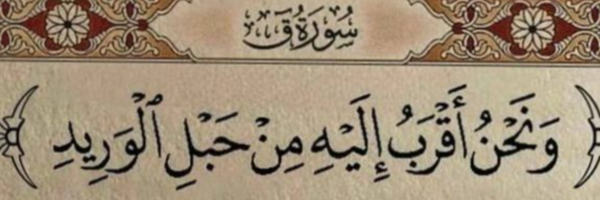 سُورَةُ ق
وَنَحْنُ أَقْرَبُ إِلَيْهِ مِنْ حَبْلِ ٱلْوَرِيدِ